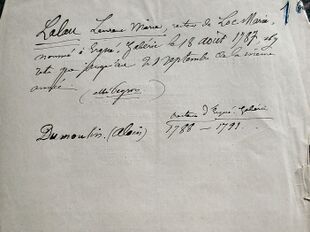 Lalau Laurent Marie, recteur de Loc Maria,
nommé à Ergué-Gabéric le 18 août 1787 n'y
resta que jusqu'au 21 septembre de la même
année.
Dumoulin (Alain)
recteur d'Ergué-Gabéric
1788 — 1791